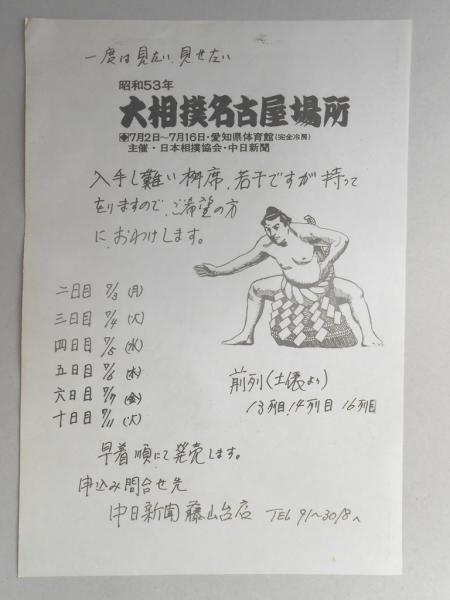 一度は見たい、見せたい
昭和53年
大相撲名古屋場所
7月2日〜7月16日・愛知県体育館(完全冷房)
主催・日本相撲協会・中日新聞
入手し難い桝席、若干ですが持って
をりますので、ご希望の方
に、おわけします。
二日目 7/3 (月)
三日目 7/4 (火)
四日目 7/5 (水)
五日目 7/6 (木)
六日目 7/7 (金)
十日目 7/11 (火)
前列(土俵より)
13列目、14列目 16列目
早着順にて発売します。
申込み問合せ先
中日新聞 藤山台店 TEL 91〜3018へ